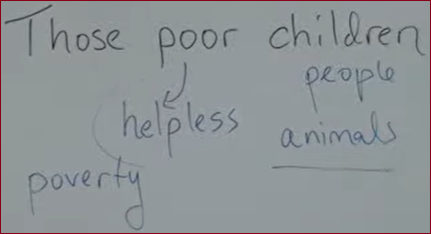 Those poor children
people
helpless
animals
poverty